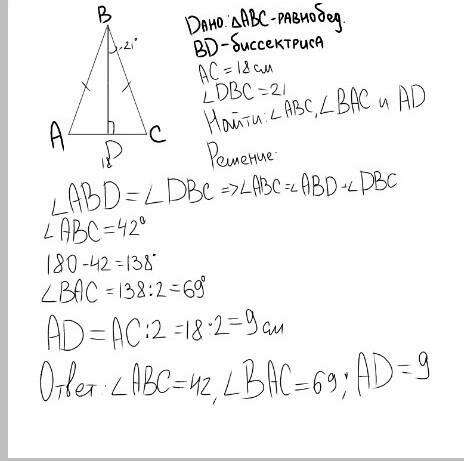 B
21°
A
D
C
18
Дано: △ABC-равнобед.
BD-биссектриса
AC=18см
∠DBC=21
Найти: ∠ABC, ∠BAC и AD
Решение:
∠ABD=∠DBC =>∠ABC=∠ABD+∠DBC
∠ABC=42°
180-42=138°
∠BAC=138:2=69°
AD=AC:2=18:2=9см
Ответ: ∠ABC=42, ∠BAC=69; AD=9